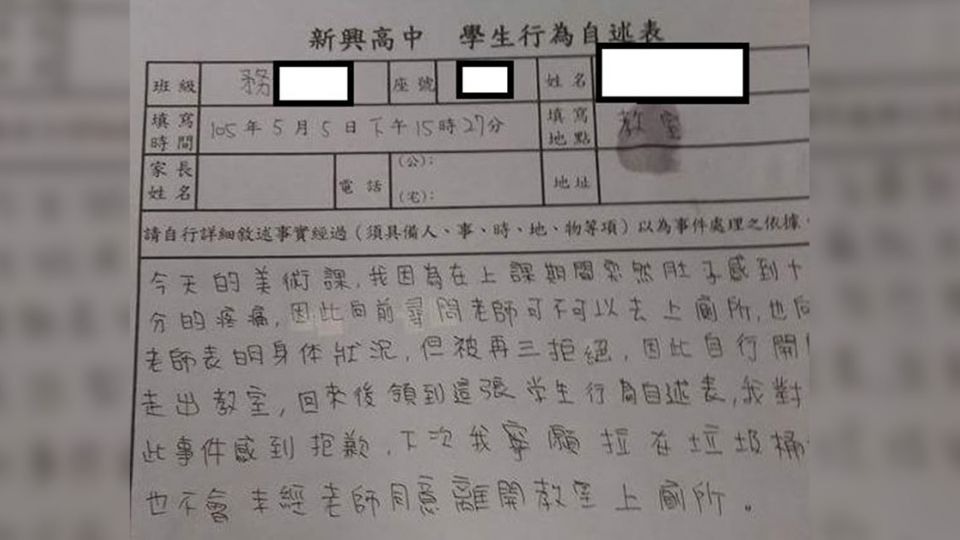 新興高中 學生行為自述表
班級 務 座號 姓名
填寫時間 105年5月5日下午15時27分 填寫地點 教室
家長姓名 電話 (公): (宅): 地址
請自行詳細敘述事實經過(須具備人、事、時、地、物等項)以為事件處理之依據
今天的美術課,我因為在上課期間突然肚子感到十
分的疼痛,因此向前尋問老師可不可以去上廁所,也向
老師表明身体狀況,但被再三拒絕,因此自行開
走出教室,回來後領到這張学生行為自述表,我對
此事件感到抱歉,下次我寧願拉在垃圾桶
也不會未經老師同意離開教室上廁所。